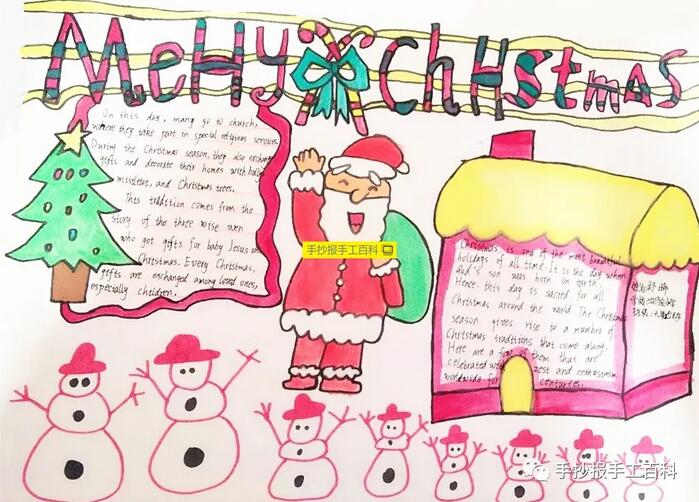 MeHy ChHstmAS
On this day, mang go to church,
where they take part in special religious services.
During the Christmas season, they also exchang
gifts and decorate their homes with holly
mistletoe, and Christmas trees.
This tradition comes from the
story of the three wise wen
who got gifts for baby Jesus on
Christmas. Every Christmas,
gifts are enchanged among loved ones,
especially children.
手抄报手工百科
Christmas is one of the most beautiful
holidays of all time. It is the day when
God's son was born on earth.
Hence, this day is sacred for all
Christmas around the world. The Christmas
season gives rise to a number of
Christmas traditions that come along.
Here are a few of them that are
celebrated with zest and enthusiasm
worldwide for centuries.
手抄报手工百科